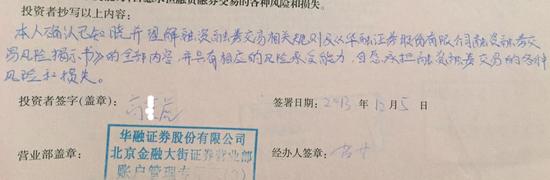 的各种风险和损失。
投资者抄写以上内容：
本人确认已知晓并理解融资融券交易相关规则及《华融证券股份有限公司融资融券交
易风险揭示书》的全部内容，并具有相应的风险承受能力，自愿承担融资融券交易的各种
风险和损失。
投资者签字（盖章）： 签署日期：2013 年 12 月 5 日
华融证券股份有限公司
营业部盖章： 北京金融大街证券营业部 经办人签章：
账户管理专